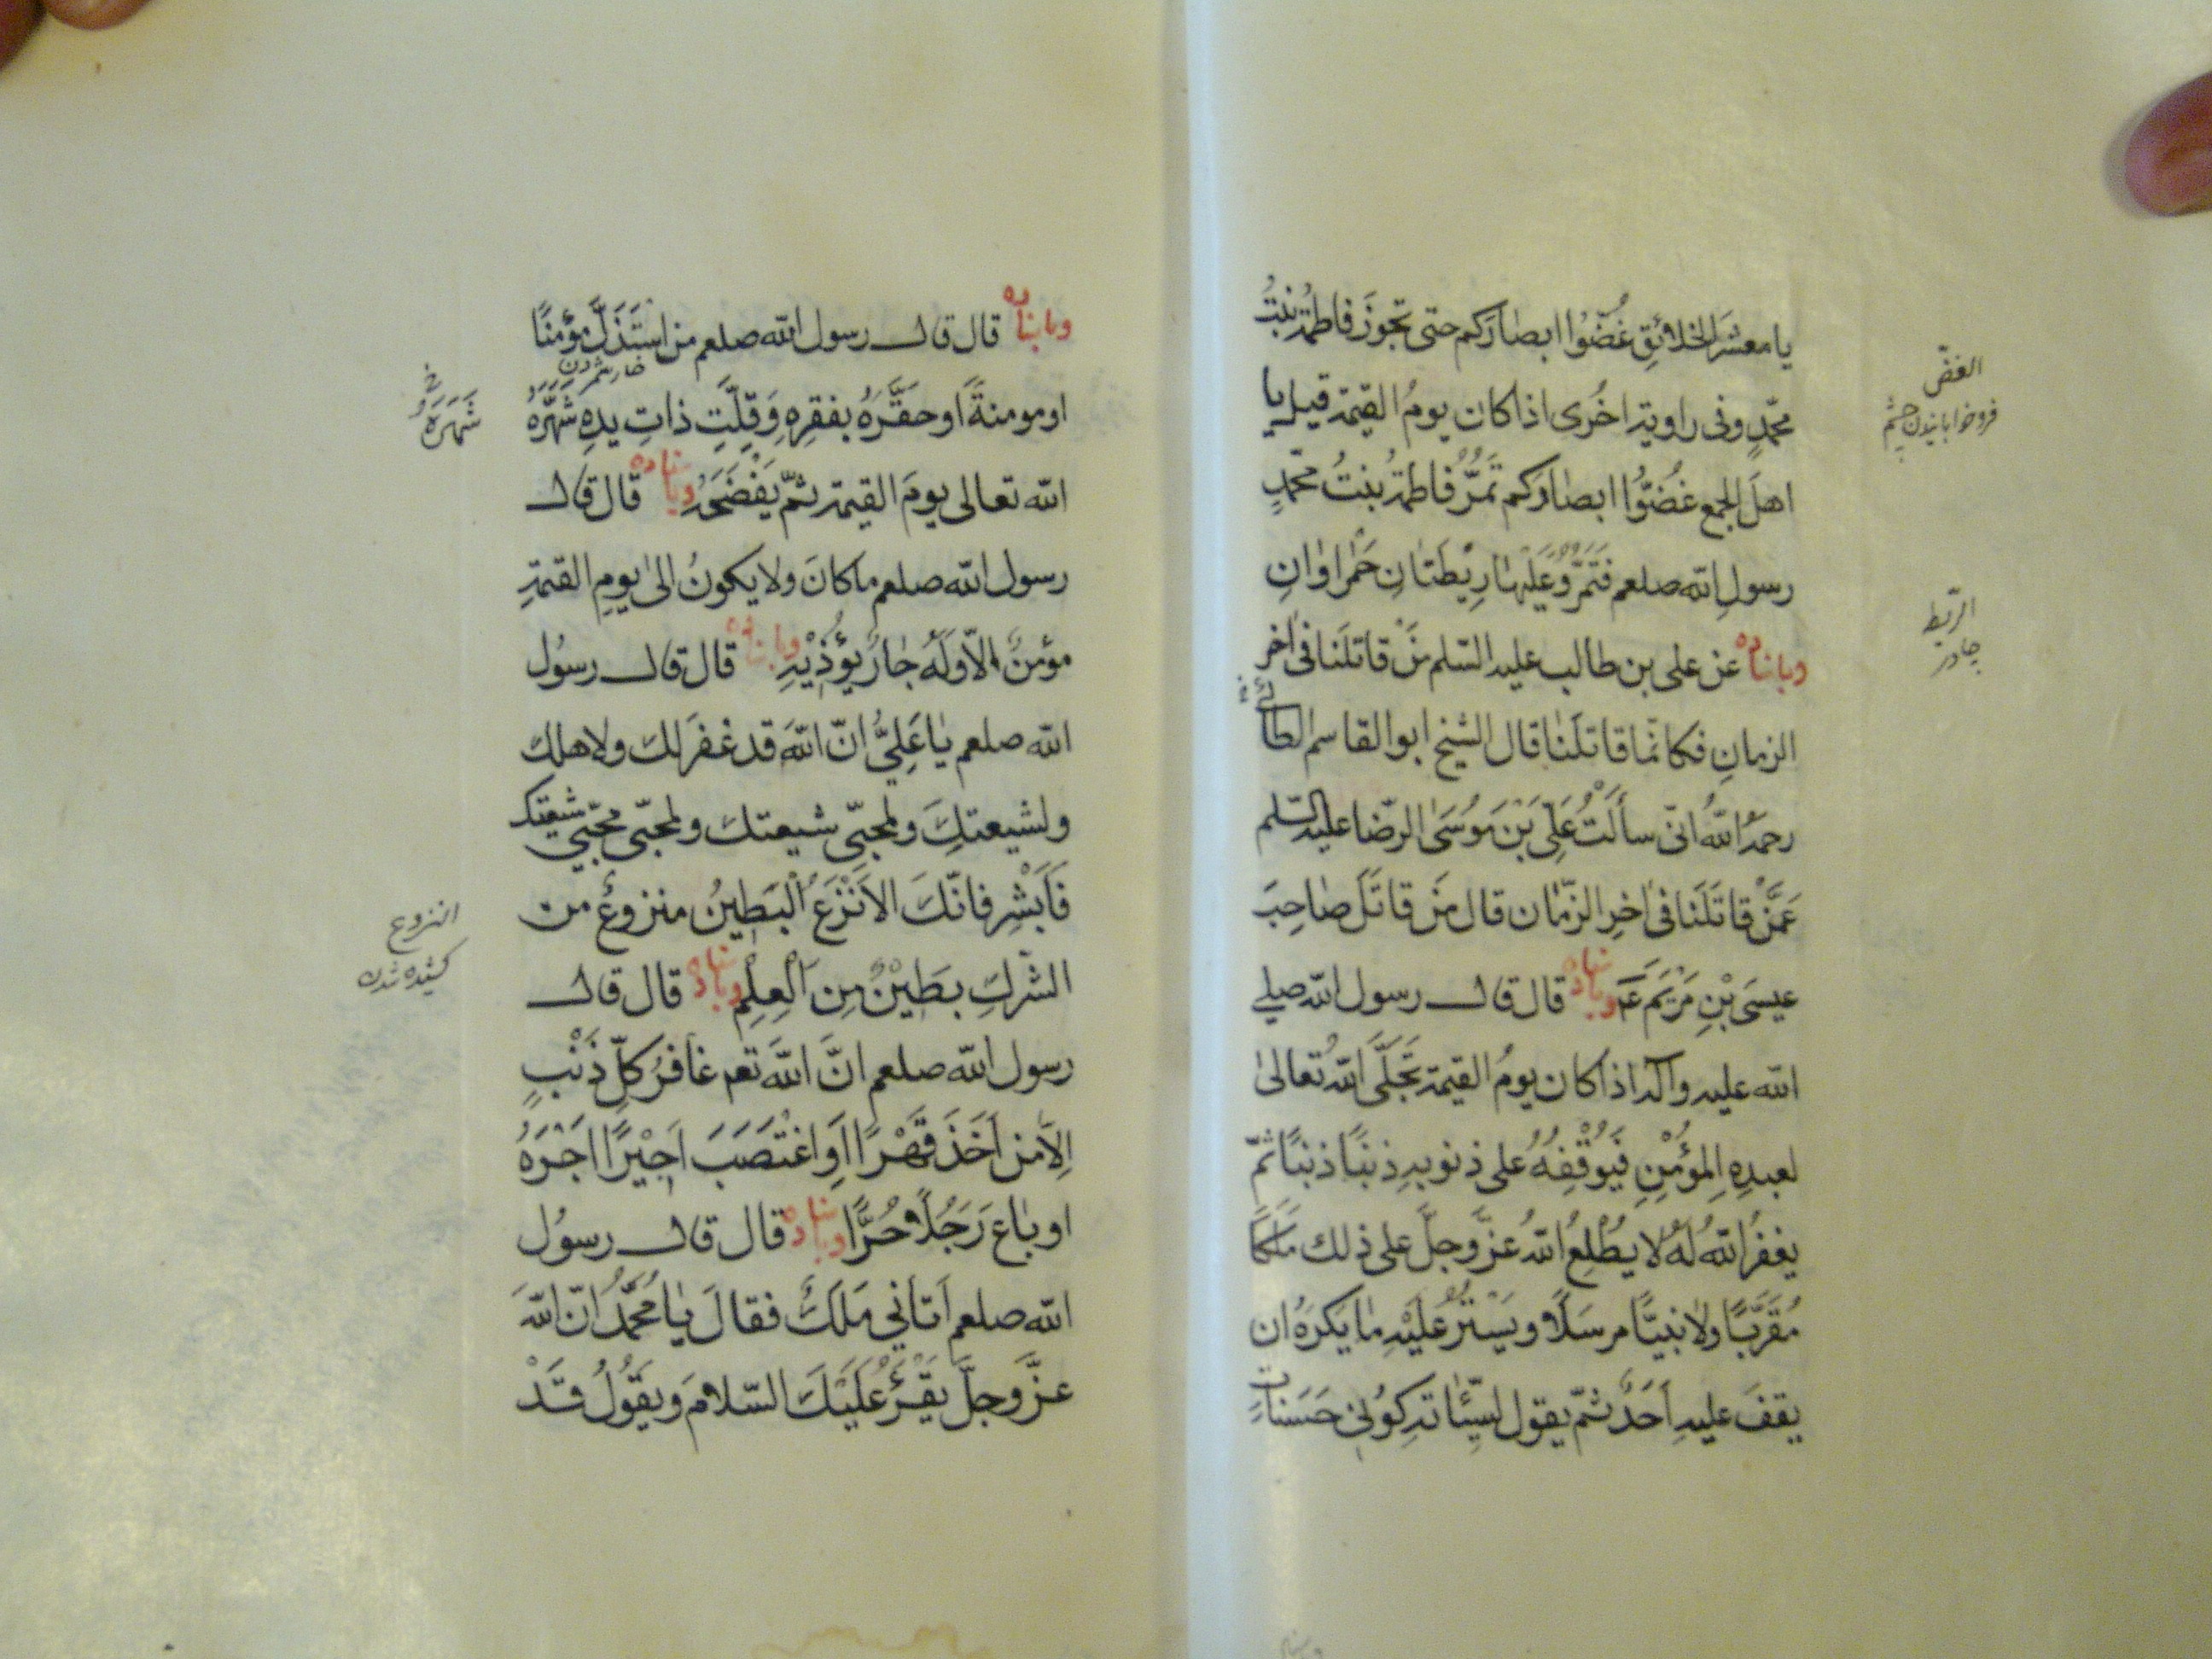 يا معشر الخلائق غُضّوا ابصاركم حتى تجوز فاطمة بنت
محمّدٍ وفى رواية اخرى اذا كان يومُ القيمة قيل يا
اهلَ الجمع غُضّوا ابصاركم تمرُّ فاطمةُ بنتُ محمّدٍ
رسولِ الله صلعم فتمرّ وعليها ريطتان حمراوانِ
وباسناده عن على بن طالب عليه السّلم مَن قاتلَنا فى اخر
الزمانِ فكانّما قاتلَنا قال الشيخ ابوالقاسم الطائى
رحمه الله انّى سألتُ علىّ بن موسَى الرضا عليه السّلم
عمّن قاتَلَنا فى اخرِ الزّمان قال مَن قاتَلَ صاحِبَ
عيسَى بْنِ مَرْيَم عَم وباسناده قال قال رسول الله صلى
الله عليه وآله اذا كان يومُ القيمة تجلّى الله تعالى
لعبدِهِ المؤمنِ فَيُوقِفُهُ على ذنوبهِ ذنبًا ذنبًا ثمّ
يغفرُ اللهُ لهُ لا يُطْلِعُ اللهُ عزّ وجلَّ على ذلك ملَكًا
مُقَرَّبًا ولا نبيًّا مرسَلًا ويَسْتُرُ عَلَيْهِ ما يَكرَهُ ان
يقفَ عليهِ اَحَدٌ ثمّ يقول لسيّئاته كُونى حَسَناتٍ
الغضّ
فروخوابانيدن چشم
الرّيط
چادر
وباسناده قال قال رسول الله صلعم من استَذلَّ مؤمنًا
او مومنةً او حقّرَهُ بفقرِهِ وَقِلّتِ ذاتِ يدِهِ شَهّرَهُ
الله تعالى يومَ القيمة ثمّ يَفْضَحُهُ وباسناده قال قال
رسول الله صلعم ما كانَ ولا يكونُ الىٰ يومِ القيمةِ
مؤمنٌ الّا ولَهُ جارٌ يؤذِيْهِ وباسناده قال قال رسُول
الله صلعم يا عَلِىُّ انّ اللهَ قد غفرَ لك ولاهلك
ولشيعتكَ ولمحبّى شيعتك ولمحبّى محبّي شيعتك
فَاَبْشِر فانّكَ الاَنْزَعُ الْبَطِينُ منزوعٌ من
الشركِ بَطِيْنٌ مِن الْعِلْمِ وباسناده قال قال
رسول الله صلعم انَّ اللهَ تعم غافرُ كلِّ ذَنْبٍ
اِلّا من اَخَذَ قَهْرًا اَوِ اغْتَصَبَ اَجِيْرًا اَجْرَهُ
او باعَ رَجُلًا حُرًّا وباسناده قال قال رسُول
الله صلعم اَتاني مَلَكٌ فقالَ يا محمّدُ انّ اللهَ
عزّ وجلَّ يَقْرَءُ عَلَيْكَ السّلامَ ويقُولُ قَدْ
شَهَرَهُ
النزوع
كشيده شدن